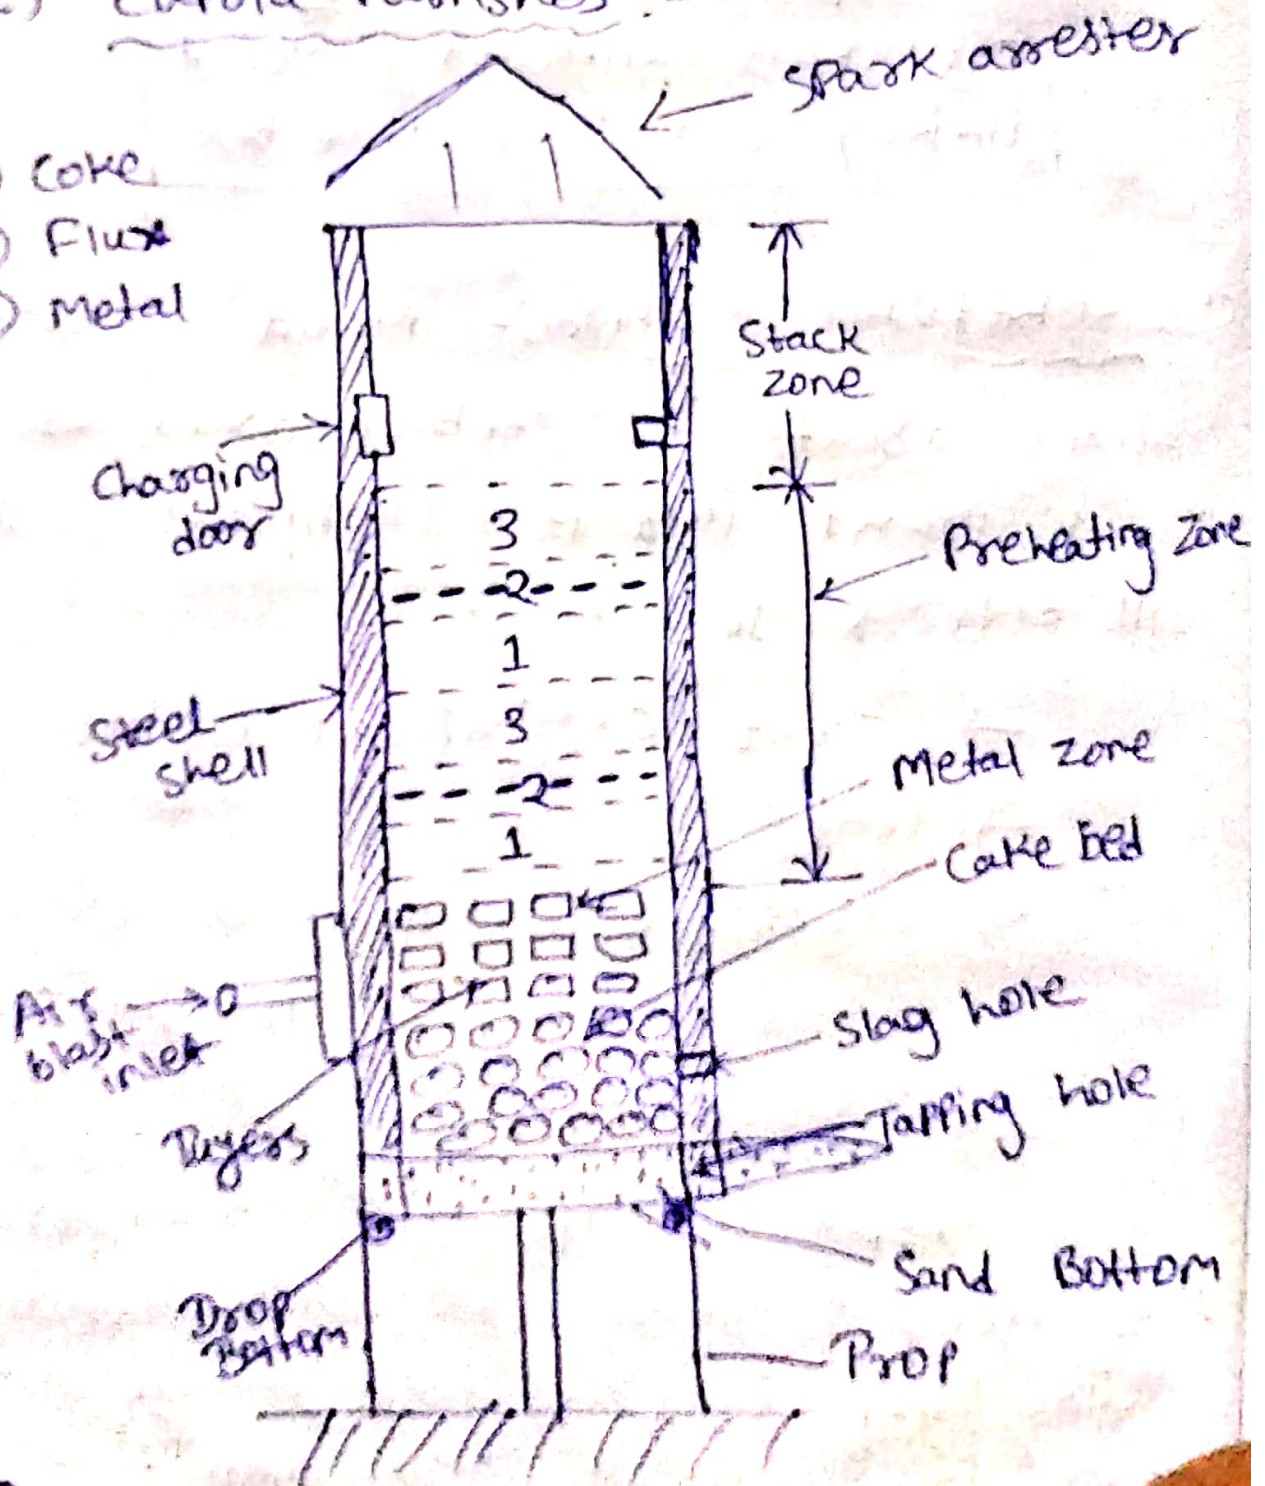 Cupola Furnishes
Spark arrester
Coke
Flux
Metal
Stack
zone
Charging
door
3
2
1
3
2
1
Preheating zone
Steel
shell
Metal zone
Cake bed
Air
blast
inlet
Slag hole
Tapping hole
Tuyers
Sand Bottom
Drop
Bottom
Prop